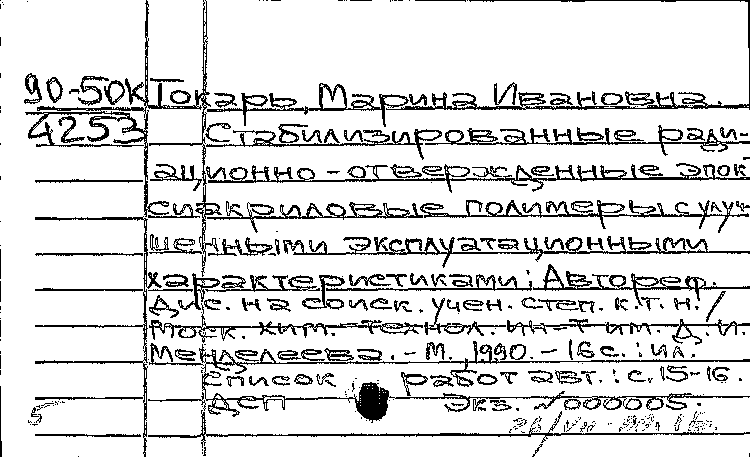 90-50К Токарь, Марина Ивановна.
4253 Стабилизированные ради-
ационно-отвержденные эпок
сиакриловые полимеры с улуч
шенными эксплуатационными
характеристиками: Автореф.
Дис. на соиск. учен. степ. к.т.н./
Моск. хим.-технол. ин-т им. Д.И.
Менделеева. - М., 1990. - 16 с.: ил.
Список работ авт.: с. 15-16.
5 ДСП Экз. №000005.